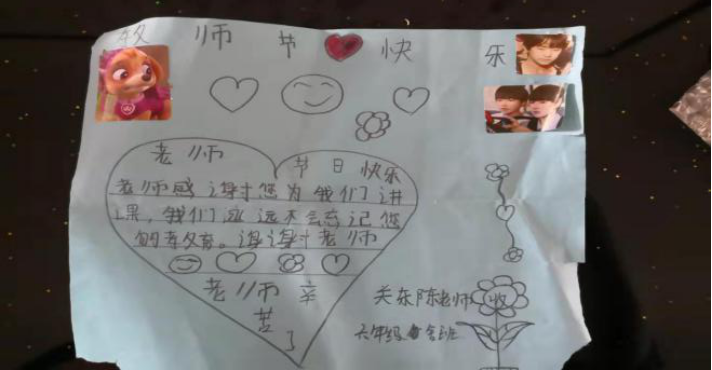 教师节快乐
老师
节日快乐
老师感谢您为我们讲
课，我们永远不会忘记您
的孝攵育。谢谢老师
老师辛
苦了
关东陈老师收
六年级